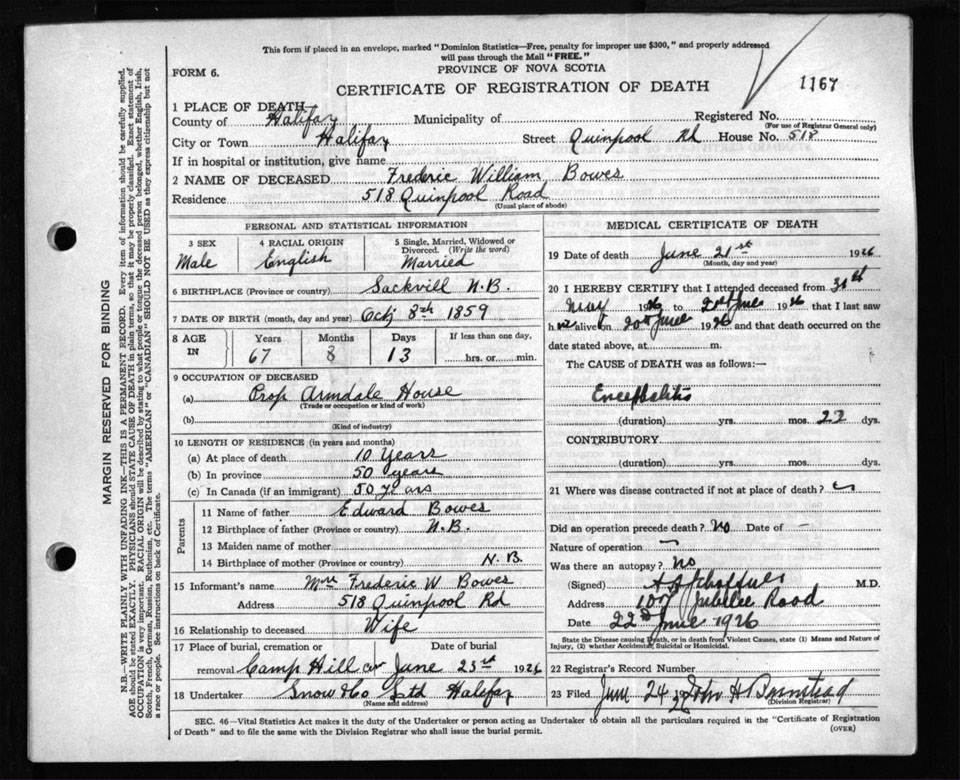 This form if placed in an envelope, marked "Dominion Statistics—Free, penalty for improper use $300," and properly addressed
will pass through the Mail "FREE."
PROVINCE OF NOVA SCOTIA
FORM 6.
CERTIFICATE OF REGISTRATION OF DEATH
1167
1 PLACE OF DEATH
County of Halifax Municipality of Registered No.
(For use of Registrar General only)
City or Town Halifax Street Quinpool Rd House No. 518
If in hospital or institution, give name
2 NAME OF DECEASED Frederic William Bowes
Residence 518 Quinpool Road
(Usual place of abode)
PERSONAL AND STATISTICAL INFORMATION
3 SEX 4 RACIAL ORIGIN 5 Single, Married, Widowed or Divorced. (Write the word)
Male English Married
6 BIRTHPLACE (Province or country) Sackvill N.B.
7 DATE OF BIRTH (month, day and year) Oct 8th 1859
8 AGE IN Years Months Days If less than one day,
67 8 13 hrs. or min.
9 OCCUPATION OF DECEASED
(a) Prop Armdale House
(Trade or occupation or kind of work)
(b)
(Kind of industry)
10 LENGTH OF RESIDENCE (in years and months)
(a) At place of death 10 Years
(b) In province 50 years
(c) In Canada (if an immigrant) 50 years
Parents
11 Name of father Edward Bowes
12 Birthplace of father (Province or country) N.B.
13 Maiden name of mother
14 Birthplace of mother (Province or country) N.B.
15 Informant's name Mrs Frederic W Bowes
Address 518 Quinpool Rd
16 Relationship to deceased Wife
17 Place of burial, cremation or Date of burial
removal Camp Hill Cem June 23rd 1926
18 Undertaker Snow & Co Ltd Halifax
(Name and address)
MEDICAL CERTIFICATE OF DEATH
19 Date of death June 21st 1926
(Month, day and year)
20 I HEREBY CERTIFY that I attended deceased from 30th
May 1926 to 21st June 1926 that I last saw
him alive on 20th June 1926 and that death occurred on the
date stated above, at m.
The CAUSE OF DEATH was as follows:—
Encephalitis
(duration) yrs. mos. 22 dys.
CONTRIBUTORY
(duration) yrs. mos. dys.
21 Where was disease contracted if not at place of death?
Did an operation precede death? no Date of —
Nature of operation —
Was there an autopsy? no
(Signed) M.D.
Address Jubilee Road
Date 22nd June 1926
State the Disease causing Death, or in death from Violent Causes, state (1) Means and Nature of
Injury, (2) whether Accidental, Suicidal or Homicidal.
22 Registrar's Record Number
23 Filed June 24 John H Barnstead
(Division Registrar)
SEC. 46—Vital Statistics Act makes it the duty of the Undertaker or person acting as Undertaker to obtain all the particulars required in the "Certificate of Registration
of Death" and to file the same with the Division Registrar who shall issue the burial permit.
(OVER)
MARGIN RESERVED FOR BINDING
N.B.—WRITE PLAINLY WITH UNFADING INK—THIS IS A PERMANENT RECORD. Every item of information should be carefully supplied.
AGE should be stated EXACTLY. PHYSICIANS should STATE CAUSE OF DEATH in plain terms, so that it may be properly classified. Exact statement of
OCCUPATION is very important. RACIAL ORIGIN will be described by stating to what people or tongue the deceased person belonged, whether English, Irish,
Scotch, French, German, Russian, Ruthenian, etc. The terms "AMERICAN" or "CANADIAN" SHOULD NOT BE USED as they express citizenship but not
a race or people. See instructions on back of Certificate.